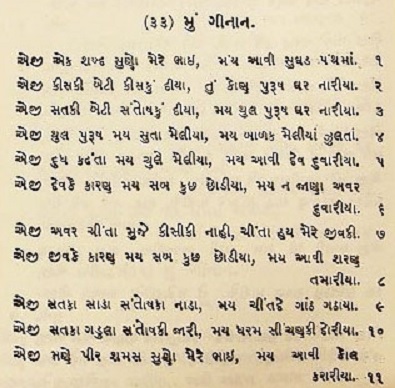 (૩૩) મું ગીનાન.
એજી એક શબ્દ સુણો મેરે ભાઇ, મંય આવી સુઘડ પંથમાં. ૧
એજી કીસકી બેટી કીસકું દીયા, તું કોણ પુરૂષ ઘર નારીયા. ૨
એજી સતકી બેટી સંતોષકું દીયા, મય ચુલ પુરૂષ ઘર નારીયા. ૩
એજી ચુલ પુરૂષ મય સુતા મેલીયા, મય બાળક મેલીયાં ઝુલતાં. ૪
એજી દુધ કઢંતા મય ચુલે મેલીયા, મય આવી દેવ દુવારીયા. ૫
એજી દેવકે કારણ મય સબ કુછ છોડીયા, મય ન જાણા અવર
દુવારીયા. ૬
એજી અવર ચીંતા મુજે કીસીકી નાહી, ચીંતા હુય મેરે જીવકી. ૭
એજી જીવકે કારણ મય સબ કુછ છોડીયા, મય આવી શરણ
તમારીયા. ૮
એજી સતકા સાડા સંતોષકા નાડા, મય ચીંતદે ગાંઠ ગઠાયા. ૯
એજી સતકા ગડુલા સંતોષકી જારી, મય ધરમ સીંચણકી દોરીયા. ૧૦
એજી ભણે પીર શમસ સુણો મેરે ભાઇ, મય આવી કોલ
કરારીયા. ૧૧